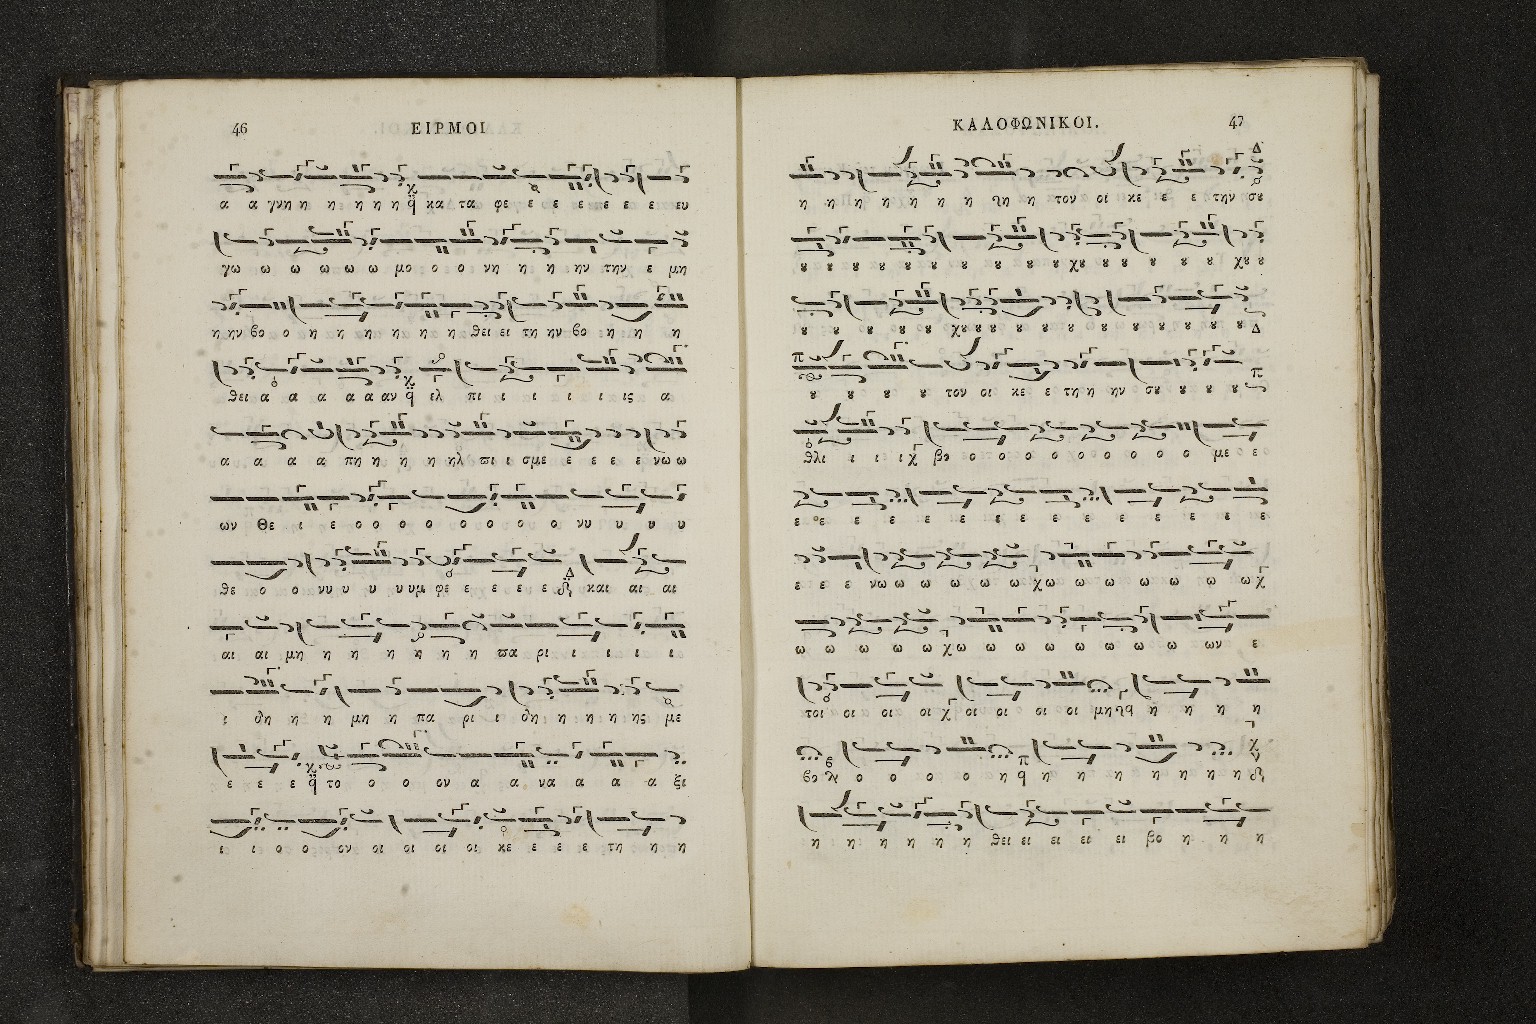 46
ΕΙΡΜΟΙ
α α γνη η η η η η κα τα φε ε ε ε ε ε ε ευ
γω ω ω ω ω ω μο ο ο νη η η ην την ε μη
η ην βο ο η η η η η η θει ει τη ην βο η η η
θει α α α α α αν ελ πι ι ι ι ι ις α
α α α α πη η η η ηλ πι ι σμε ε ε ε ε νω ω
ων Θε ι ε ο ο ο ο ο ο ο ο νυ υ υ υ
θε ο ο νυ υ υ υυμ φε ε ε ε ε ε και αι αι
αι αι μη η η η η η η πα ρι ι ι ι ι
ι δη η η μη η πα ρι ι δη η η η ης με
ε ε ε το ο ο ον α α να α α α ξι
ι ι ο ο ον οι οι οι οι κε ε ε ε τη η η
ΚΑΛΟΦΩΝΙΚΟΙ.
47
η η η η η η η λη η τον οι κε ε ε την σȣ
ȣ ȣ ȣ ȣ ȣ ȣ ȣ ȣ ȣ ȣ χȣ ȣ ȣ ȣ ȣ ȣ χȣ ȣ
ȣ ȣ ȣ ȣ ȣ ȣ χȣ ȣ ȣ ȣ ȣ ȣ ȣ ȣ ȣ ȣ ȣ ȣ
ȣ ȣ ȣ ȣ τον οι κε ε τη η ην σȣ ȣ ȣ ȣ
θλι ι ι ι βο ο ο ο ο ο ο ο ο ο με ε
ε ε ε ε ε ε ε ε ε ε ε ε ε ε
ε ε ε νω ω ω ω ω ω χω ω ω ω ω ω ω ω
ω ω ω ω ω χω ω ω ω ω ω ω ω ων ε
τοι οι οι οι οι οι οι οι μη η η η η
βο ο ο ο ο η η η η η η η η
η η η η η η θει ει ει ει ει βο η η η